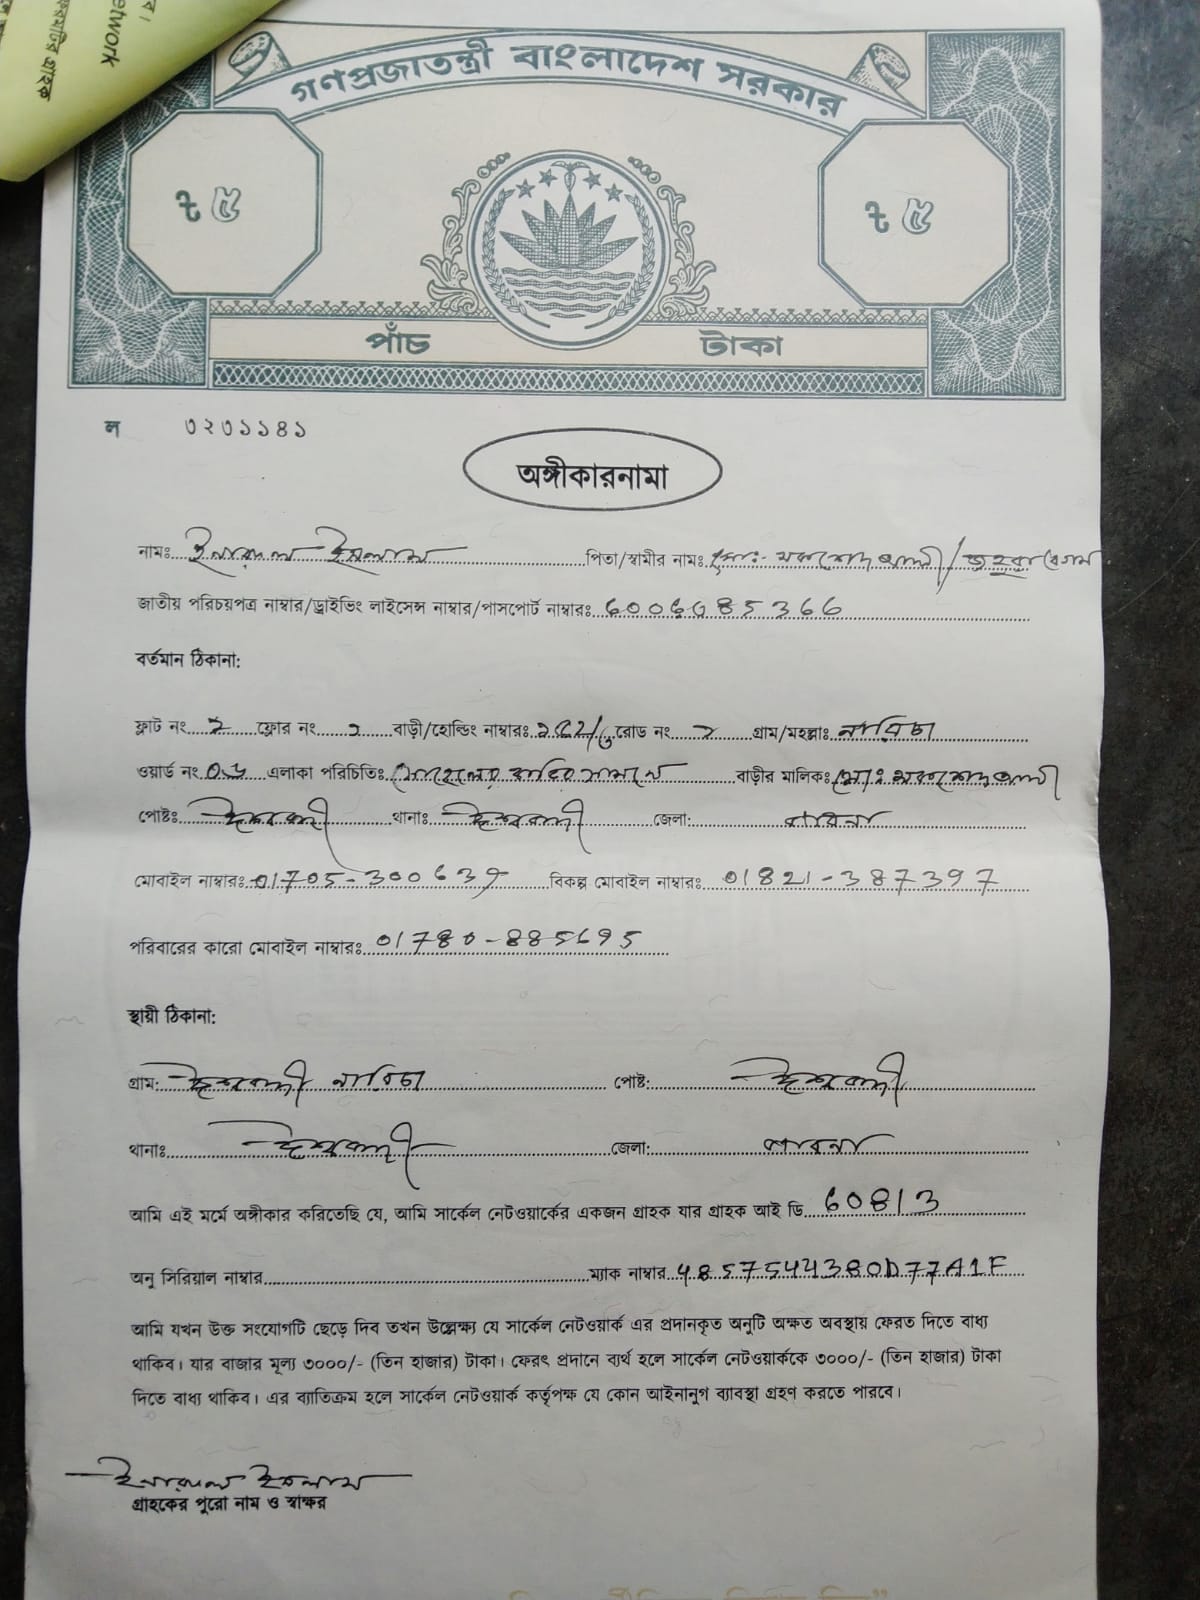 network
গণপ্রজাতন্ত্রী বাংলাদেশ সরকার
৳ ৫ ৳ ৫
পাঁচ টাকা
ল ৩২৩১১৪১
অঙ্গীকারনামা
নামঃ ইনামুল ইসলাম পিতা/স্বামীর নামঃ মোঃ- মকশেদ আলী / জহুরা বেগম
জাতীয় পরিচয়পত্র নাম্বার/ড্রাইভিং লাইসেন্স নাম্বার/পাসপোর্ট নাম্বারঃ
বর্তমান ঠিকানা:
ফ্লাট নং ফ্লোর নং বাড়ী/হোল্ডিং নাম্বারঃ রোড নং গ্রাম/মহল্লাঃ নারিচা
ওয়ার্ড নং এলাকা পরিচিতিঃ সোহেলের বাড়ির সামনে বাড়ীর মালিকঃ মোঃ মকশেদ আলী
পোষ্টঃ ঈশ্বরদী থানাঃ ঈশ্বরদী জেলা: পাবনা
মোবাইল নাম্বারঃ 01705-300639 বিকল্প মোবাইল নাম্বারঃ 01821-387397
পরিবারের কারো মোবাইল নাম্বারঃ 01780-885695
স্থায়ী ঠিকানা:
গ্রাম: ঈশ্বরদী নারিচা পোষ্ট: ঈশ্বরদী
থানাঃ ঈশ্বরদী জেলা: পাবনা
আমি এই মর্মে অঙ্গীকার করিতেছি যে, আমি সার্কেল নেটওয়ার্কের একজন গ্রাহক যার গ্রাহক আই ডি 60813
অনু সিরিয়াল নাম্বার ম্যাক নাম্বার 4857544380D77A1F
আমি যখন উক্ত সংযোগটি ছেড়ে দিব তখন উল্লেক্ষ্য যে সার্কেল নেটওয়ার্ক এর প্রদানকৃত অনুটি অক্ষত অবস্থায় ফেরত দিতে বাধ্য
থাকিব। যার বাজার মূল্য ৩০০০/- (তিন হাজার) টাকা। ফেরৎ প্রদানে ব্যর্থ হলে সার্কেল নেটওয়ার্ককে ৩০০০/- (তিন হাজার) টাকা
দিতে বাধ্য থাকিব। এর ব্যাতিক্রম হলে সার্কেল নেটওয়ার্ক কর্তৃপক্ষ যে কোন আইনানুগ ব্যাবস্থা গ্রহণ করতে পারবে।
ইনামুল ইসলাম
গ্রাহকের পুরো নাম ও স্বাক্ষর